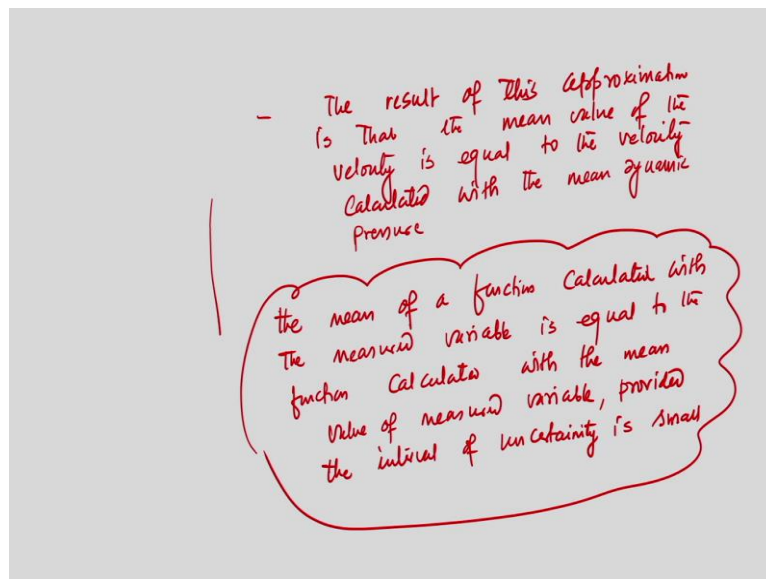 - The result of this approximation
is that the mean value of the
velocity is equal to the velocity
calculated with the mean dynamic
pressure
the mean of a function calculated with
The measured variable is equal to the
function calculated with the mean
value of measured variable, provided
the interval of uncertainity is small